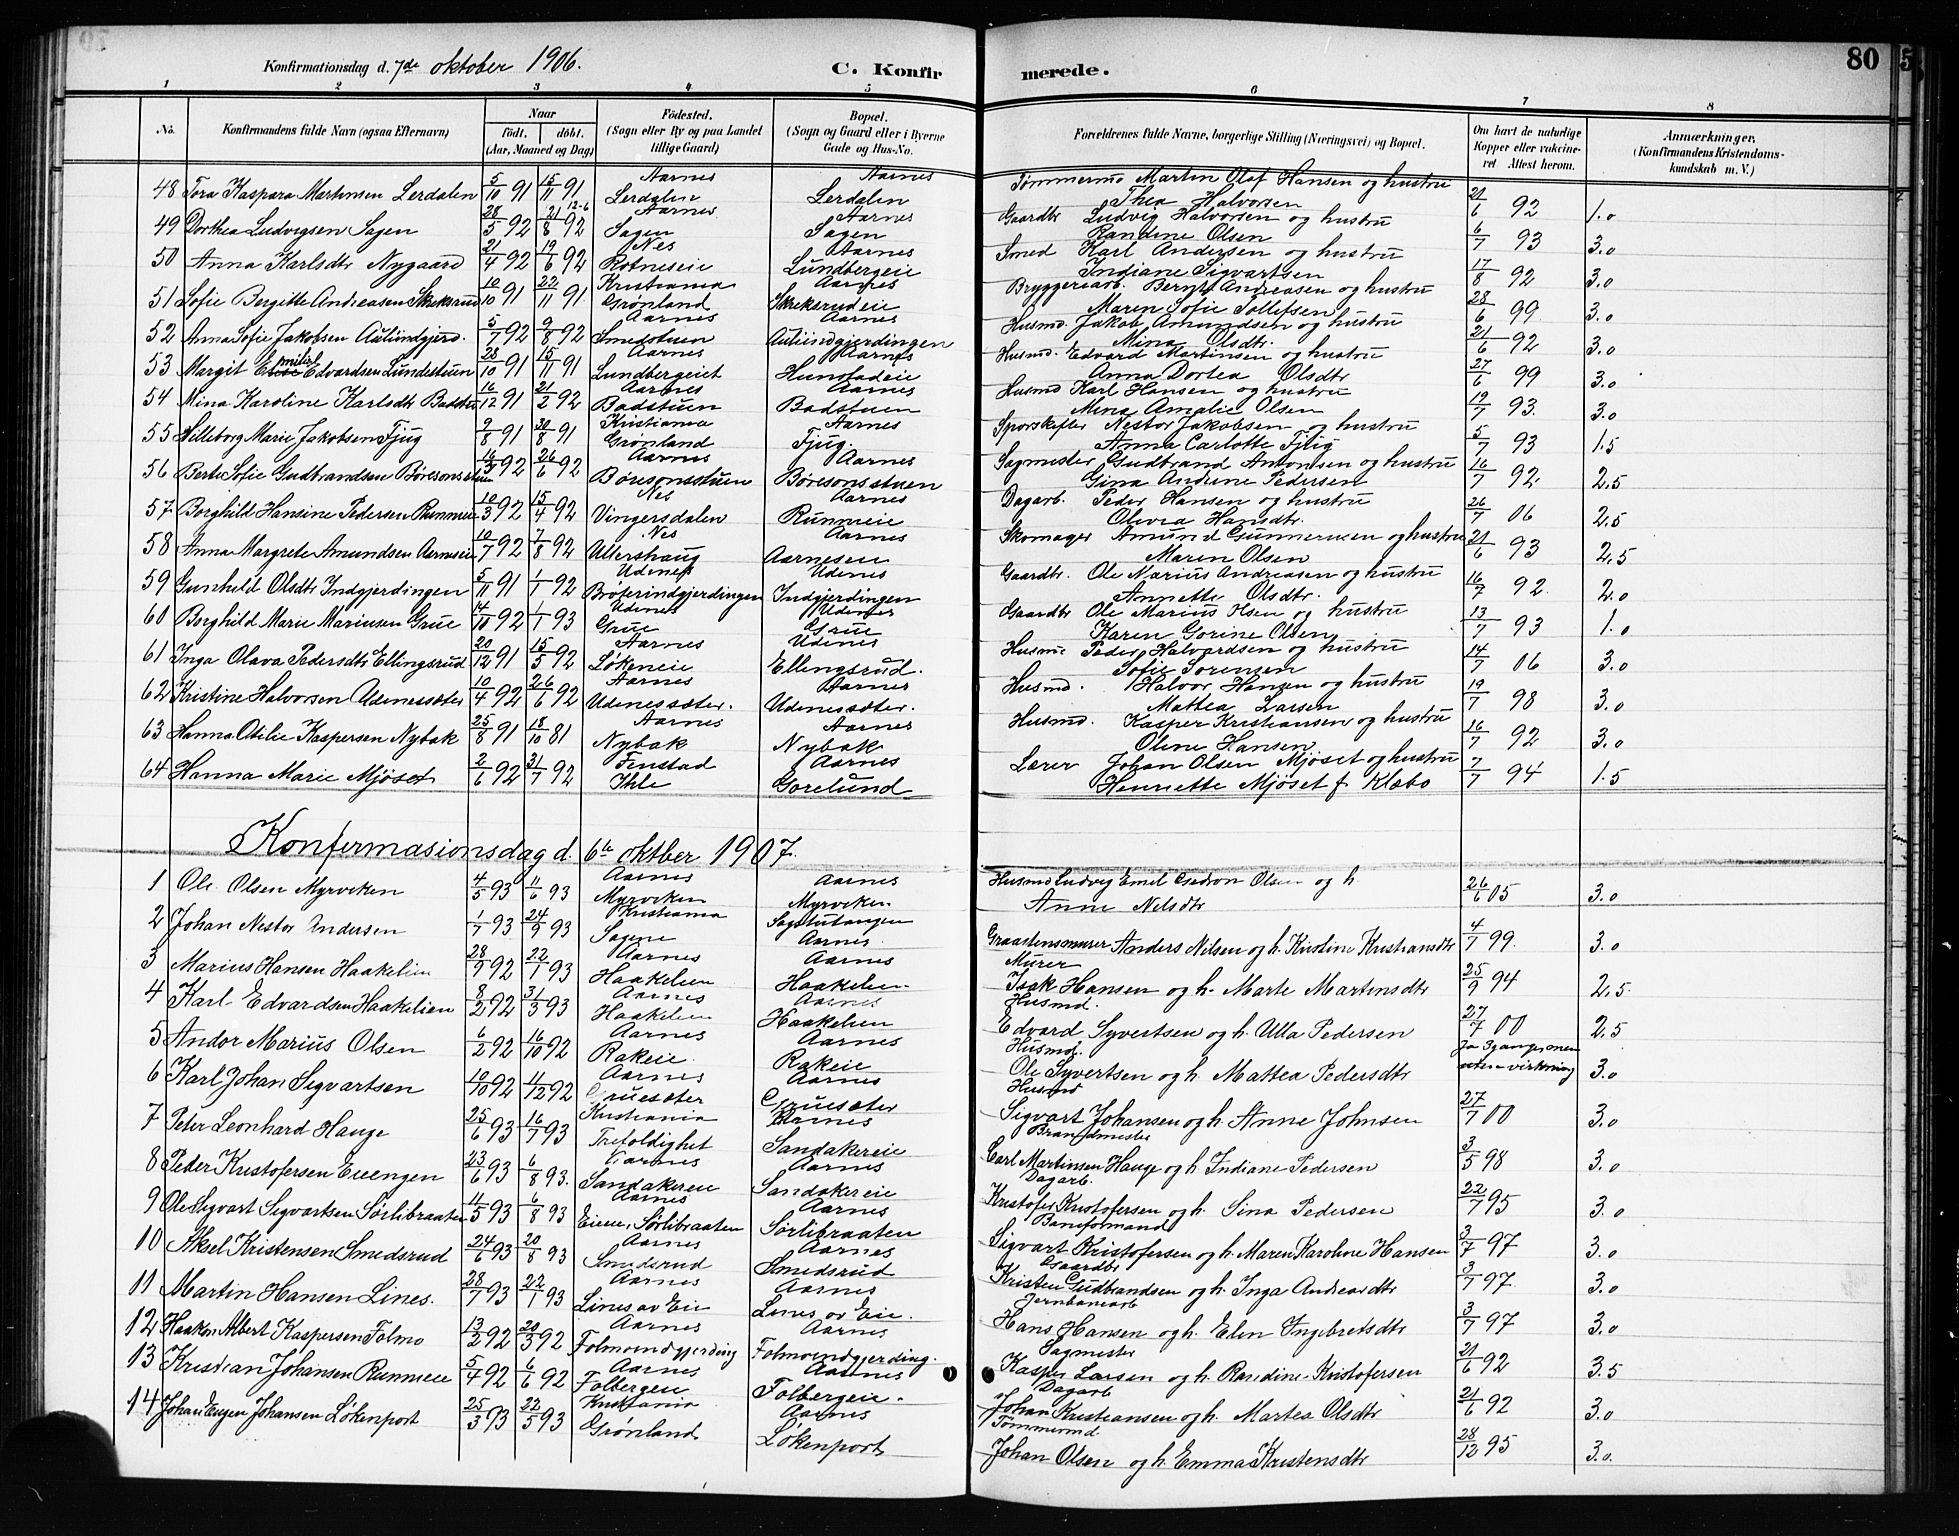 Konfirmationsdag d. 7de oktober 1906. C. Konfirmerede. 80
1 2 3 4 5 6 7 8
No. Konfirmandens fulde Navn (ogsaa Efternavn) Naar födt. döbt. (Aar, Maaned og Dag) Födested. (Sogn eller By og paa Landet tillige Gaard) Bopæl. (Sogn og Gaard eller i Byerne Gade og Hus-No. Forældrenes fulde Navne, borgerlige Stilling (Næringsvei) og Bopæl. Om havt de naturlige Kopper eller vakcineret Attest herom. Anmærkninger, (Konfirmandens Kristendomskundskab m. V.)
48 Tora Kaspara Martinsen Lerdalen 5/10 91 15/11 91 Aarnes Lerdalen Aarnes Lerdalen Tømmermd Martin Olaf Hansen og hustru Thea Halvorsen 21/6 92 1.0
49 Dorthea Ludvigsen Sagen 28/5 92 21/8 92 Aarnes Sagen Aarnes Sagen Gaardbr Ludvig Halvorsen og hustru Randine Olsen 6/7 93 3.0
50 Anna Karlsdtr Nygaard 21/4 92 19/6 92 Nes Rotneseie Aarnes Lundbergeie Smed Karl Andersen og hustru Indiane Sigvartsen 17/8 92 3.0
51 Sofie Bergitte Andreasen Skeksrud 10/10 91 22/11 91 Kristiania Grønland Aarnes Skeksrudeie Bryggeriarb. Bernt Andreasen og hustru Maren Sofie Tollefsen 28/6 99 3.0
52 Anna Sofie Jakobsen Aulundgjerd. 5/7 92 9/8 92 Aarnes Smedstuen Aarnes Aulundgjerdingen Husmd. Jakob Amundsen og hustru Mina Olsdtr. 21/6 92 3.0
53 Margit Emilie Edvardsen Lundestuen 28/10 91 15/11 91 Aarnes Lundbergeiet Aarnes Hunstadeie Husmd. Edvard Martinsen og hustru Anna Dortea Olsdtr 27/6 99 3.0
54 Mina Karoline Karlsdtr Badstu 16/12 91 21/2 92 Aarnes Badstuen Aarnes Badstuen Husmd Karl Hansen og hustru Mina Amalie Olsen 19/7 93. 3.0
55 Hilleborg Marie Jakobsen Fjug 9/8 91 30/8 91 Kristiania Grønland Aarnes Fjug. Sporskifter Nestor Jakobsen og hustru Anna Carlotte Fjlig 5/7 93 1.5
56 Berte Sofie Gudbrandsen Børesonsstuen 16/5 92 26/6 92 Aarnes Børesonsstuen Aarnes Børesonsstuen Sagmester Gudbrand Antonsen og hustru Gina Andrine Pedersen 16/7 92. 2.5
57. Borghild Hansine Pedersen Runmeie 10/3 92 15/4 92 Nes Vingersdalen Aarnes Runmeie Dagarb. Peder Hansen og hustru Olivia Hansdtr. 26/7 06 2.5
58 Anna Margrete Amundsen Aarneseie 10/7 92 7/8 92 Nes Ullershaug Aarnes Aarneseie Skomager Amund Gunnersen og hustru Maren Olsen 21/6 93 2.5
59 Gunhild Olsdtr Indgjerdingen 5/11 91 1/1 92 Udenes Brøterindgjerdingen Udenes Indgjerdingen Gaardbr. Ole Narius Andreasen og hustru Annette Olsdtr. 16/7 92. 2.0
60 Borghild Marie Mariusen Grue 14/10 92 1/1 93 Udenes Grue Udenes Grue Gaardbr Ole Marius Olsen og hustru Karen Gorine Olsen 13/7 93 1.0
61 Inga Olava Pedersdtr Ellingsrud 20/12 91 15/5 92 Aarnes Løkeneie Udenes Ellingsrud. Husmd Peder Halvordsen og hustru Sofie Sorensen 14/7 06 3.0
62 Kristine Halvorsen Udenessæter 10/4 92 26/6 92 Aarnes Udenessæter. Aarnes Udenessæter. Husmd. Halvor Hansen og hustru Mattea Larsen 19/7 98 3.0
63 Hanna Otelie Kaspersen Nybak 25/8 91 18/10 81 Aarnes Nybak Aarnes Nybak Husmd. Kasper Kristiansen og hustru Oline Hansen 16/7 92 3.0
64 Hanna Marie Mjøset 2/6 92 31/7 92 Finstad Ihle Aarnes Gorelund Lærer Johan Olsen Mjøset og hustru Henriette Mjøset f Klæbo 7/7 94 1.5
Konfermasionsdag d. 6te oktber 1907.
1 Ole Olsen Myrviken 4/5 93 11/6 93 Aarnes Myrviken Aarnes Myrviken Husmd Ludvig Emil Olsen og h. Anne Nelsdtr 26/6 05 3.0
2 Johan Nestor Andersen 1/7 93 24/9 93 Kristiania Sagene Sagstutangen Aarnes Graastensmurer Anders Nilsen og h. Kristine Kristiansdtr 4/7 99. 3.0
3 Marius Hansen Haakelien 28/9 92 22/1 93 Aarnes Haakelien Aarnes Haakelien Murer Isak Hansen og h. Marte Martinsdtr 25/9 94 2.5.
4 Karl Edvardsen Haakelien 8/2 92 31/3 93 Aarnes Haakelien Aarnes Haakelien Husmd. Edvard Syvertsen og h. Ulla Pedersen 27/7 00 2.5
5 Andor Marius Olsen 6/2 92 16/10 92 Aarnes Rakeie Aarnes Rakeie Husmd. Ole Syvertsen og h. Mattea Pedersdtr Ja 3 ganger men uten virkning 3.0
6 Karl Johan Sigvartsen 10/10 92 11/12 92 Aarnes Gruesæter Aarnes Gruesæter Husmd Sigvart Johansen og h. Anne Johnsen 27/7 00 3.0
7 Peter Leonhard Hauge 25/6 93 16/7 93 Kristiania Trefoldighet Aarnes Sandakereie Brandmester Carl Martinsen Hauge og h. Indiane Pedersen 3/5 98 3.0
8 Peder Kristofersen Eieengen 23/6 93 6/8 93. Aarnes Sandakereie Aarnes Sandakereie Dagarb. Kristofer Kristofersen og h. Sina Pedersen 22/7 95 3.0
9 Ole Sigvart Sigvartsen Sørlibraaten 11/5 93 6/8 93 Aarnes Eiene, Sørlibraaten Aarnes Sørlibraaten Baneformand Sigvart Kristofersen og h. Maren Karoline Hansen 3/7 97 3.0
10 Aksel Kristensen Smedsrud 24/6 93 20/8 93 Aarnes Smedsrud Aarnes Smedsrud Gaardbr Kristen Gudbrandsen og h. Inga Andreasdtr 3/7 97. 3.0
11 Martin Hansen Lines. 28/7 93 22/1 93 Aarnes Lines av Eie Aarnes Lines av Eie Jernbanearb Hans Hansen og h. Elen Ingebretsdtr 3/7 97 3.0
12 Haakon Albert Kaspersen Folmo 13/2 92 20/3 92 Aarnes Folmoindgjerding Aarnes Folmoindgjerding. Sagmester Kasper Larsen og h. Randine Kristofersen 21/6 92 3.5
13 Kristian Johansen Runmeie 5/4 92 6/6 92 Aarnes Folbergeie Aarnes Folbergeie. Dagarb Johan Kristiansen og h. Martea Olsdtr 21/6 92 3.0
14 Johan Eugen Johansen Løkenport 25/3 93 22/5 93 Kristiania Grønland Aarnes Løkenport Tømmermd Johan Olsen og h. Emma Kristensdtr 28/12 95 3.0.